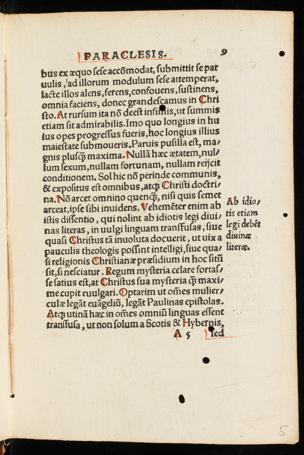 PARACLESIS. 9
bus ex æquo sese accõmodat, submittit se par
uulis, ad illorum modulum sese attemperat,
lacte illos alens, ferens, confouens, sustinens,
omnia faciens, donec grandescamus in Chri
sto. At rursum ita nõ deest infimis, ut summis
etiam sit admirabilis. Imo quo longius in hu
ius opes progressus fueris, hoc longius illius
maiestate submoueris. Paruis pusilla est, ma-
gnis plusq̃ maxima. Nullā hæc ætatem, nul-
lum sexum, nullam fortunam, nullam reijcit
conditionem. Sol hic nõ perinde communis,
& expositus est omnibus, atq; Christi doctri-
na. Nõ arcet omnino quenq̃, nisi quis semet
arceat, ipse sibi inuidens. Vehemēter enim ab
istis dissentio, qui nolint ab idiotis legi diui-
nas literas, in uulgi linguam transfusas, siue
quasi Christus tā inuoluta docuerit, ut uix a
pauculis theologis possunt intelligi, siue qua-
si religionis Christianæ præsidium in hoc sitū
sit, si nesciatur. Regum mysteria celare fortas/
se satius est, at Christus sua mysteria q̃ maxi-
me cupit euulgari. Optarim ut om̃es mulier/
culæ legāt euāgeliū, legāt Paulinas epistolas.
Atq; utinā hæc in om̃es omniū linguas essent
transfusa, ut non solum a Scotis & Hybernis,
A 5 sed
Ab idio/
tis etiam
legi debēt
diuinæ
literæ.
5